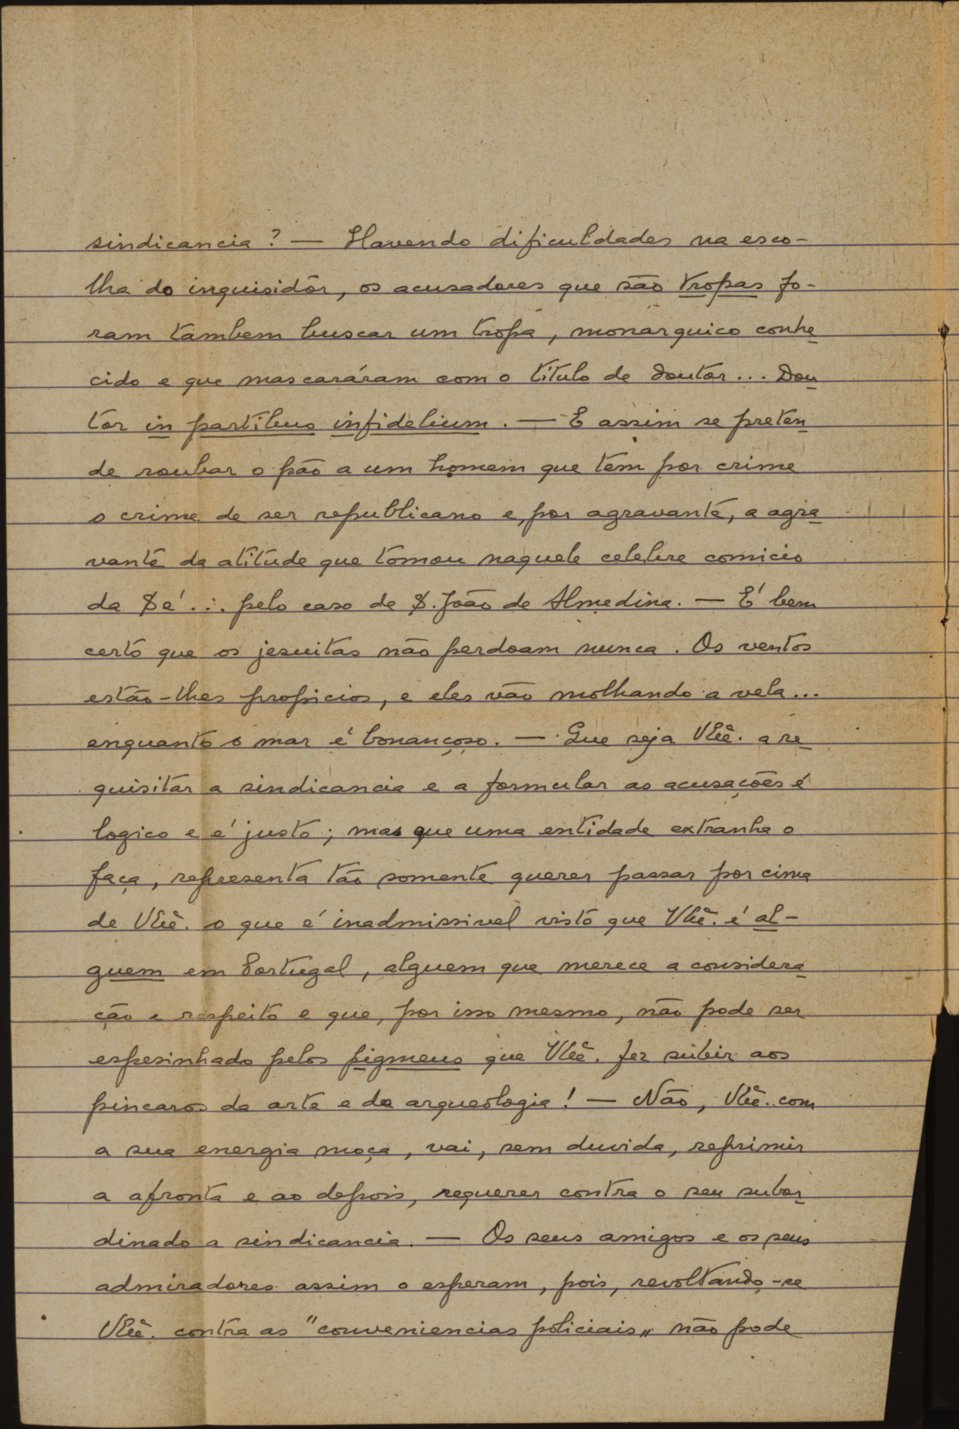 sindicancia? — Havendo dificuldades na esco-
lha do inquisidôr, os acusadores que são tropas fo-
ram tambem buscar um tropa, monarquico conhe
cido e que mascaráram com o título de doutor... Dou
tor in partibus infidelium. — E assim se preten
de roubar o pão a um homem que tem por crime
o crime de ser republicano e, por agravante, a agra
vante da atitude que tomou naquele celebre comicio
da Sé ∴ pelo caso de S. João de Almedina. — É bem
certo que os jesuitas não perdoam nunca. Os ventos
estão-lhes propicios, e eles vão molhando a vela...
enquanto o mar é bonançoso. — Que seja VExª. a re
quisitar a sindicancia e a formular as acusações é
logico e é justo; mas que uma entidade extranha o
faça, representa tão somente querer passar por cima
de VExª. o que é inadmissivel visto que VExª. é al-
guem em Portugal, alguem que merece a considera
ção e respeito e que, por isso mesmo, não pode ser
espesinhado pelos pigmeus que VExª. fez subir aos
pincaros da arte e da arqueologia! — Não, VExª. com
a sua energia moça, vai, sem duvida, reprimir
a afronta e ao depois, requerer contra o seu subor
dinado a sindicancia. — Os seus amigos e os seus
admiradores assim o esperam, pois, revoltando-se
VExª. contra as "conveniencias policiais„ não pode